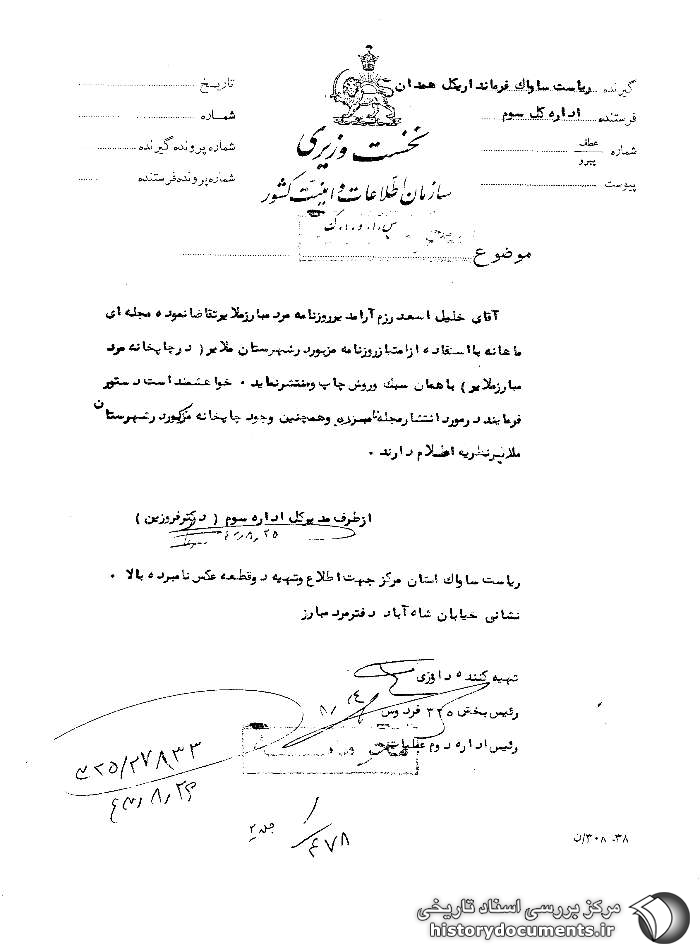 گیرنده ریاست ساواك فرمانداریکل همدان
فرستنده اداره کل سوم
شماره عطف
پیرو
پیوست
تاریخ
شماره
شماره پرونده گیرنده
شماره پرونده فرستنده
نخست وزیری
سازمان اطلاعات و امنیت کشور
س.ا.و.ا.ك
موضوع
آقای خلیل اسعد رزم آرا مدیر روزنامه مرد مبارز ملایر تقاضا نموده مجله ای
ماهانه با استفاده از امتیاز روزنامه مزبور در شهرستان ملایر ( در چاپخانه مرد
مبارز ملایر ) با همان سبك و روش چاپ و منتشر نماید ۰ خواهشمند است دستور
فرمایند در مورد انتشار مجله نامبرده و همچنین وجود چاپخانه مزبور در شهرستان
ملایر نظریه اعلام دارند ۰
از طرف مدیر کل اداره سوم ( دکتر فروزین )
۴۲٫۸٫۲۵
ریاست ساواك استان مرکز جهت اطلاع و تهیه دو قطعه عکس نامبرده بالا ۰
نشانی خیابان شاه آباد دفتر مرد مبارز
تهیه کننده داوری
رئیس بخش ۳۲۵ فردوس
رئیس اداره دوم عملیات
۳۲۵/۲۷۸۳۳
۴۲٫۸٫۲۶
۴۷۸
۳۸- ۳۰۸/ن
مرکز بررسی اسناد تاریخی
historydocuments.ir